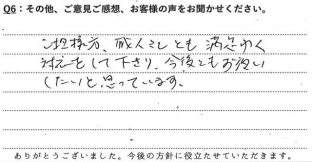 Q6：その他、ご意見ご感想、お客様の声をお聞かせください。
ご担様方、職人さんとも満足ゆく
対応をして下さり、今後ともお願い
したいと思っています。
ありがとうございました。今後の方針に役立たせていただきます。